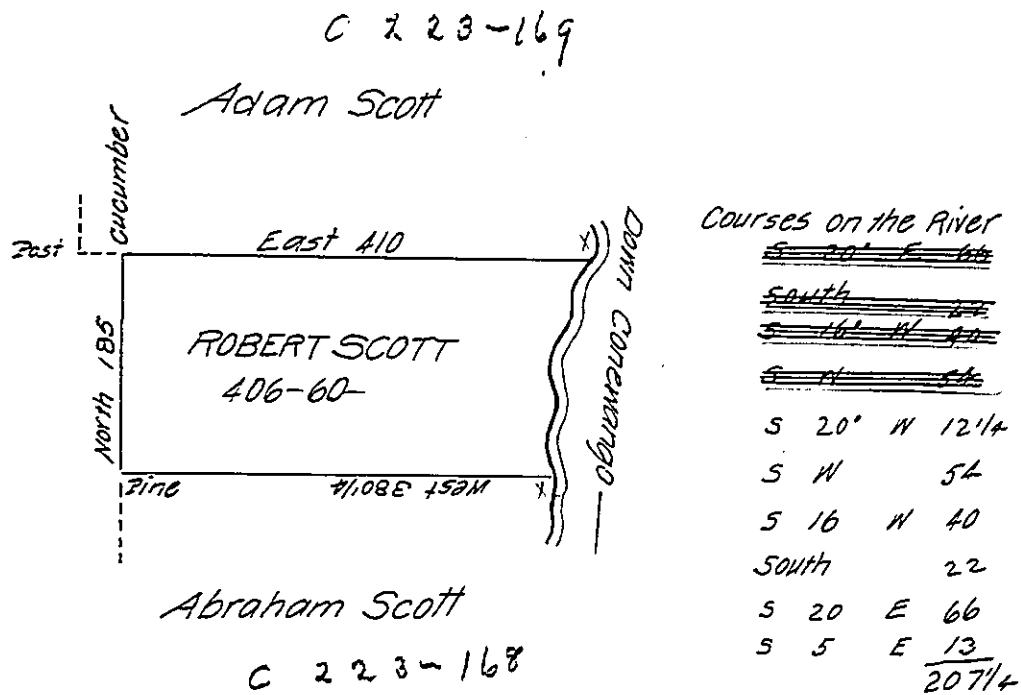 C 223-169
Adam Scott
Cucumber
Post
East 410
North 185
ROBERT SCOTT
406-60-
Pine
West 380 1/4
Down Conewango
Abraham Scott
C 223-168
Courses on the River
S 20° E 66
South 22
S 16° W 40
S W 54
S 20° W 12 1/4
S W 54
S 16 W 40
South 22
S 20 E 66
S 5 E 13
207 1/4